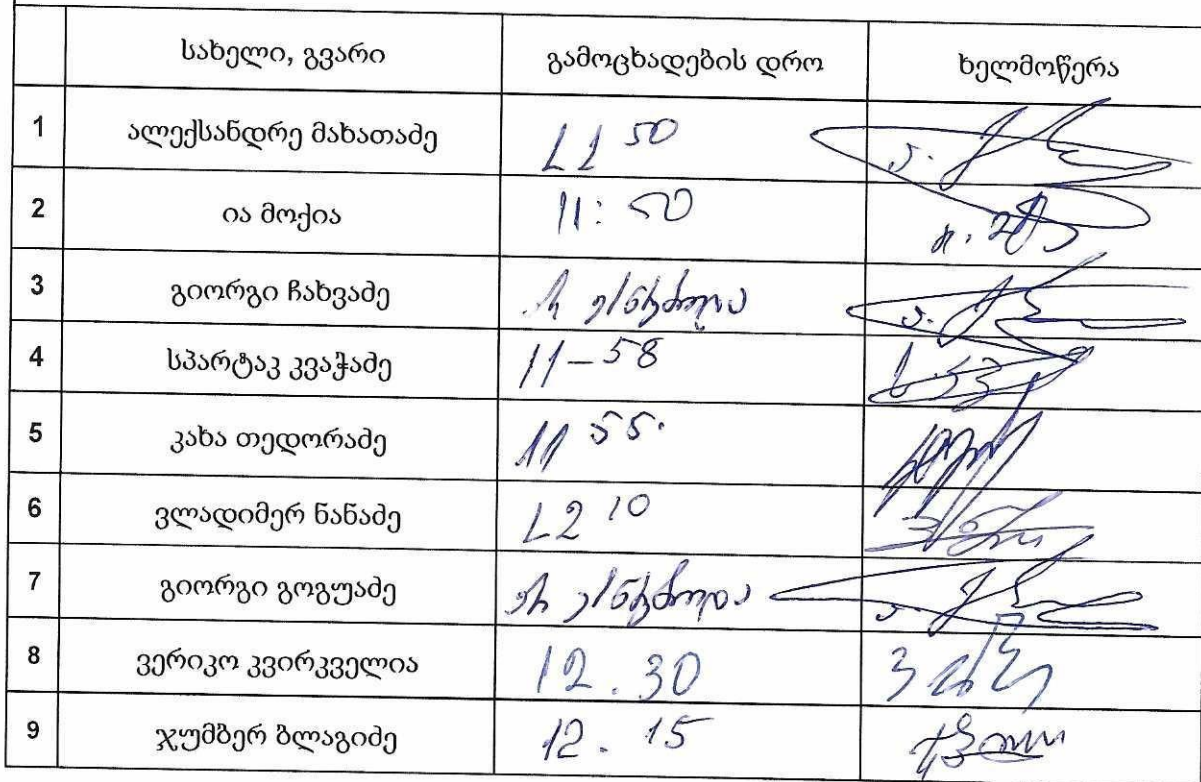 სახელი, გვარი გამოცხადების დრო ხელმოწერა
1 ალექსანდრე მახათაძე 11 50
2 ია მოქია 11:50
3 გიორგი ჩახვაძე არ ესწრებოდა
4 სპარტაკ კვაჭაძე 11-58
5 კახა თედორაძე 11 55.
6 ვლადიმერ ნანაძე 12 10
7 გიორგი გოგუაძე არ ესწრებოდა
8 ვერიკო კვირკველია 12.30
9 ჯუმბერ ბლაგიძე 12.15